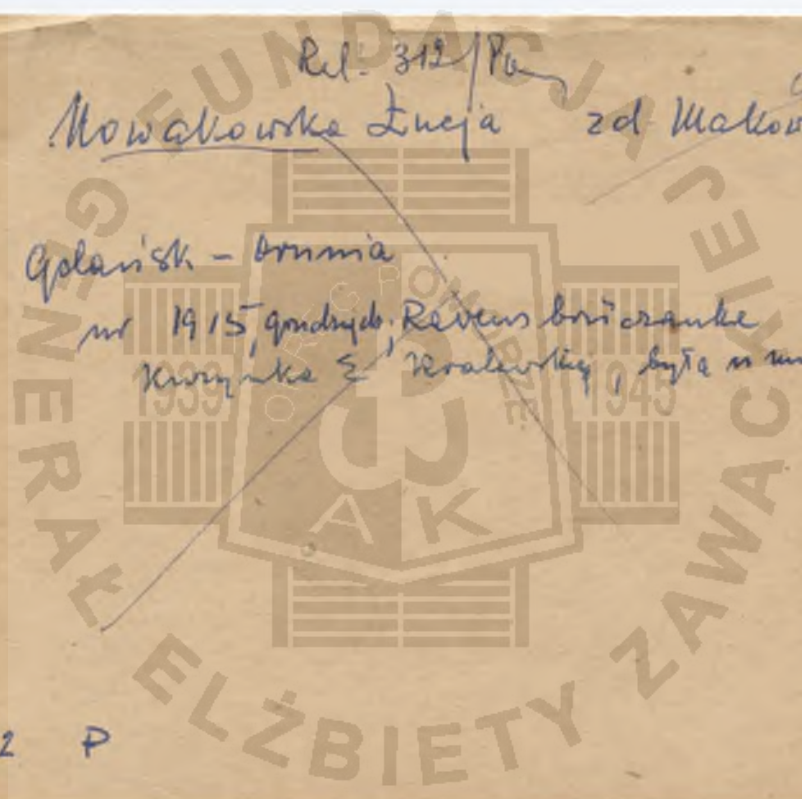 Rel. 312/Pom
Nowakowska Łucja zd Makow
Gdańsk - Orunia
ur 1915, grudzień; Ravensbrüczanka
Kuzynka E Kralewskiej, była u mn
2 P
FUNDACJA GENERAŁ ELŻBIETY ZAWACKIEJ
OKRĘG POMORZE
1939 1945
AK